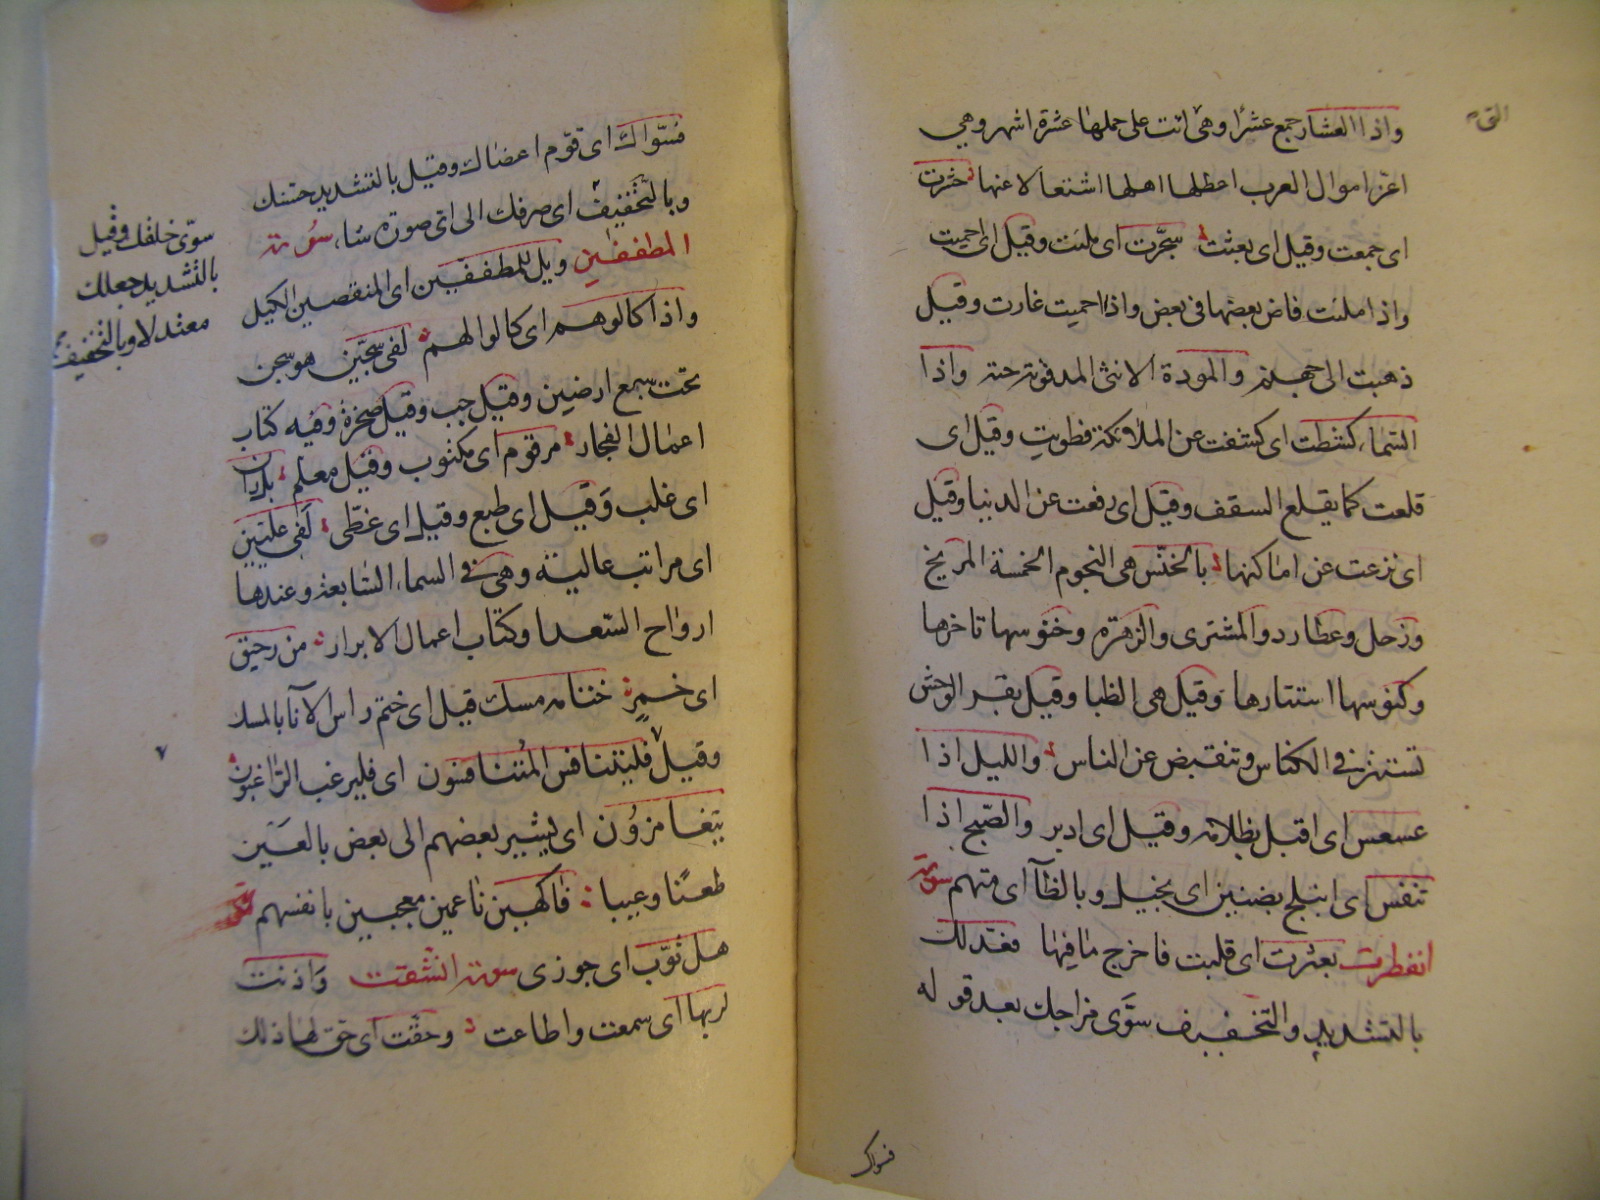 التى
واذا العشار جمع عشرا وهى اتت على حملها عشرة اشهر وهي
اعز اموال العرب اعطلها اهلها اشتغالا عنها حشرت
اى جمعت وقيل اى بعثت سجرت اى ملئت وقيل اى احميت
واذا ملئت فاض بعضها فى بعض واذا احميت غارت وقيل
ذهبت الى جهنم والمودة الانثى المدفونة حية واذا
السماء كشطت اى كشفت عن الملائكة فطويت وقيل اى
قلعت كما يقلع السقف وقيل اى رفعت عن الدنيا وقيل
اى نزعت عن اماكنها بالخنس هى النجوم الخمسة المريخ
وزحل وعطارد والمشترى والزهرة وخنوسها تاخرها
وكنوسها استتارها وقيل هى الظبا وقيل بقر الوحش
تستتر فى الكناس وتنقبض عن الناس والليل اذا
عسعس اى اقبل بظلامه وقيل اى ادبر والصبح اذا
تنفس اى ابتلج بضنين اى بخيل وبالظآ اى متهم سورة
انفطرت بعثرت اى قلبت فاخرج ما فيها فعدلك
بالتشديد والتخفيف سوّى مزاجك بعد قوله
فسواك
فسوّاك اى قوّم اعضاك وقيل بالتشديد حسنك
وبالتخفيف اى صرفك الى اى صورة شاء سورة
المطففين ويل للمطففين اى المنقصين الكيل
واذا كالوهم اى كالوا لهم لفى سجّين هو سجن
تحت سبع ارضين وقيل جب وقيل صخرة وفيه كتاب
اعمال الفجار مرقوم اى مكتوب وقيل معلم بل ران
اى غلب وقيل اى طبع وقيل اى غطّى لفى عليين
اى مراتب عالية وهى فى السماء السابعة وعندها
ارواح السعدا وكتاب اعمال الابرار من رحيق
اى خمرٍ ختامه مسك قيل اى ختم راس الانآ بالمسك
وقيل فليتنافس المتنافسون اى فليرغب الراغبون
يتغامزون اى يشير بعضهم الى بعض بالعين
طعنًا وعيبا فاكهين ناعمين معجبين بانفسهم
هل ثوّب اى جوزى سورة انشقت وَاذنت
لربها اى سمعت واطاعت وحقت اى حق لها ذلك
سوّى خلقك وقيل
بالتشديد جعلك
معتدلا وبالتخفيف